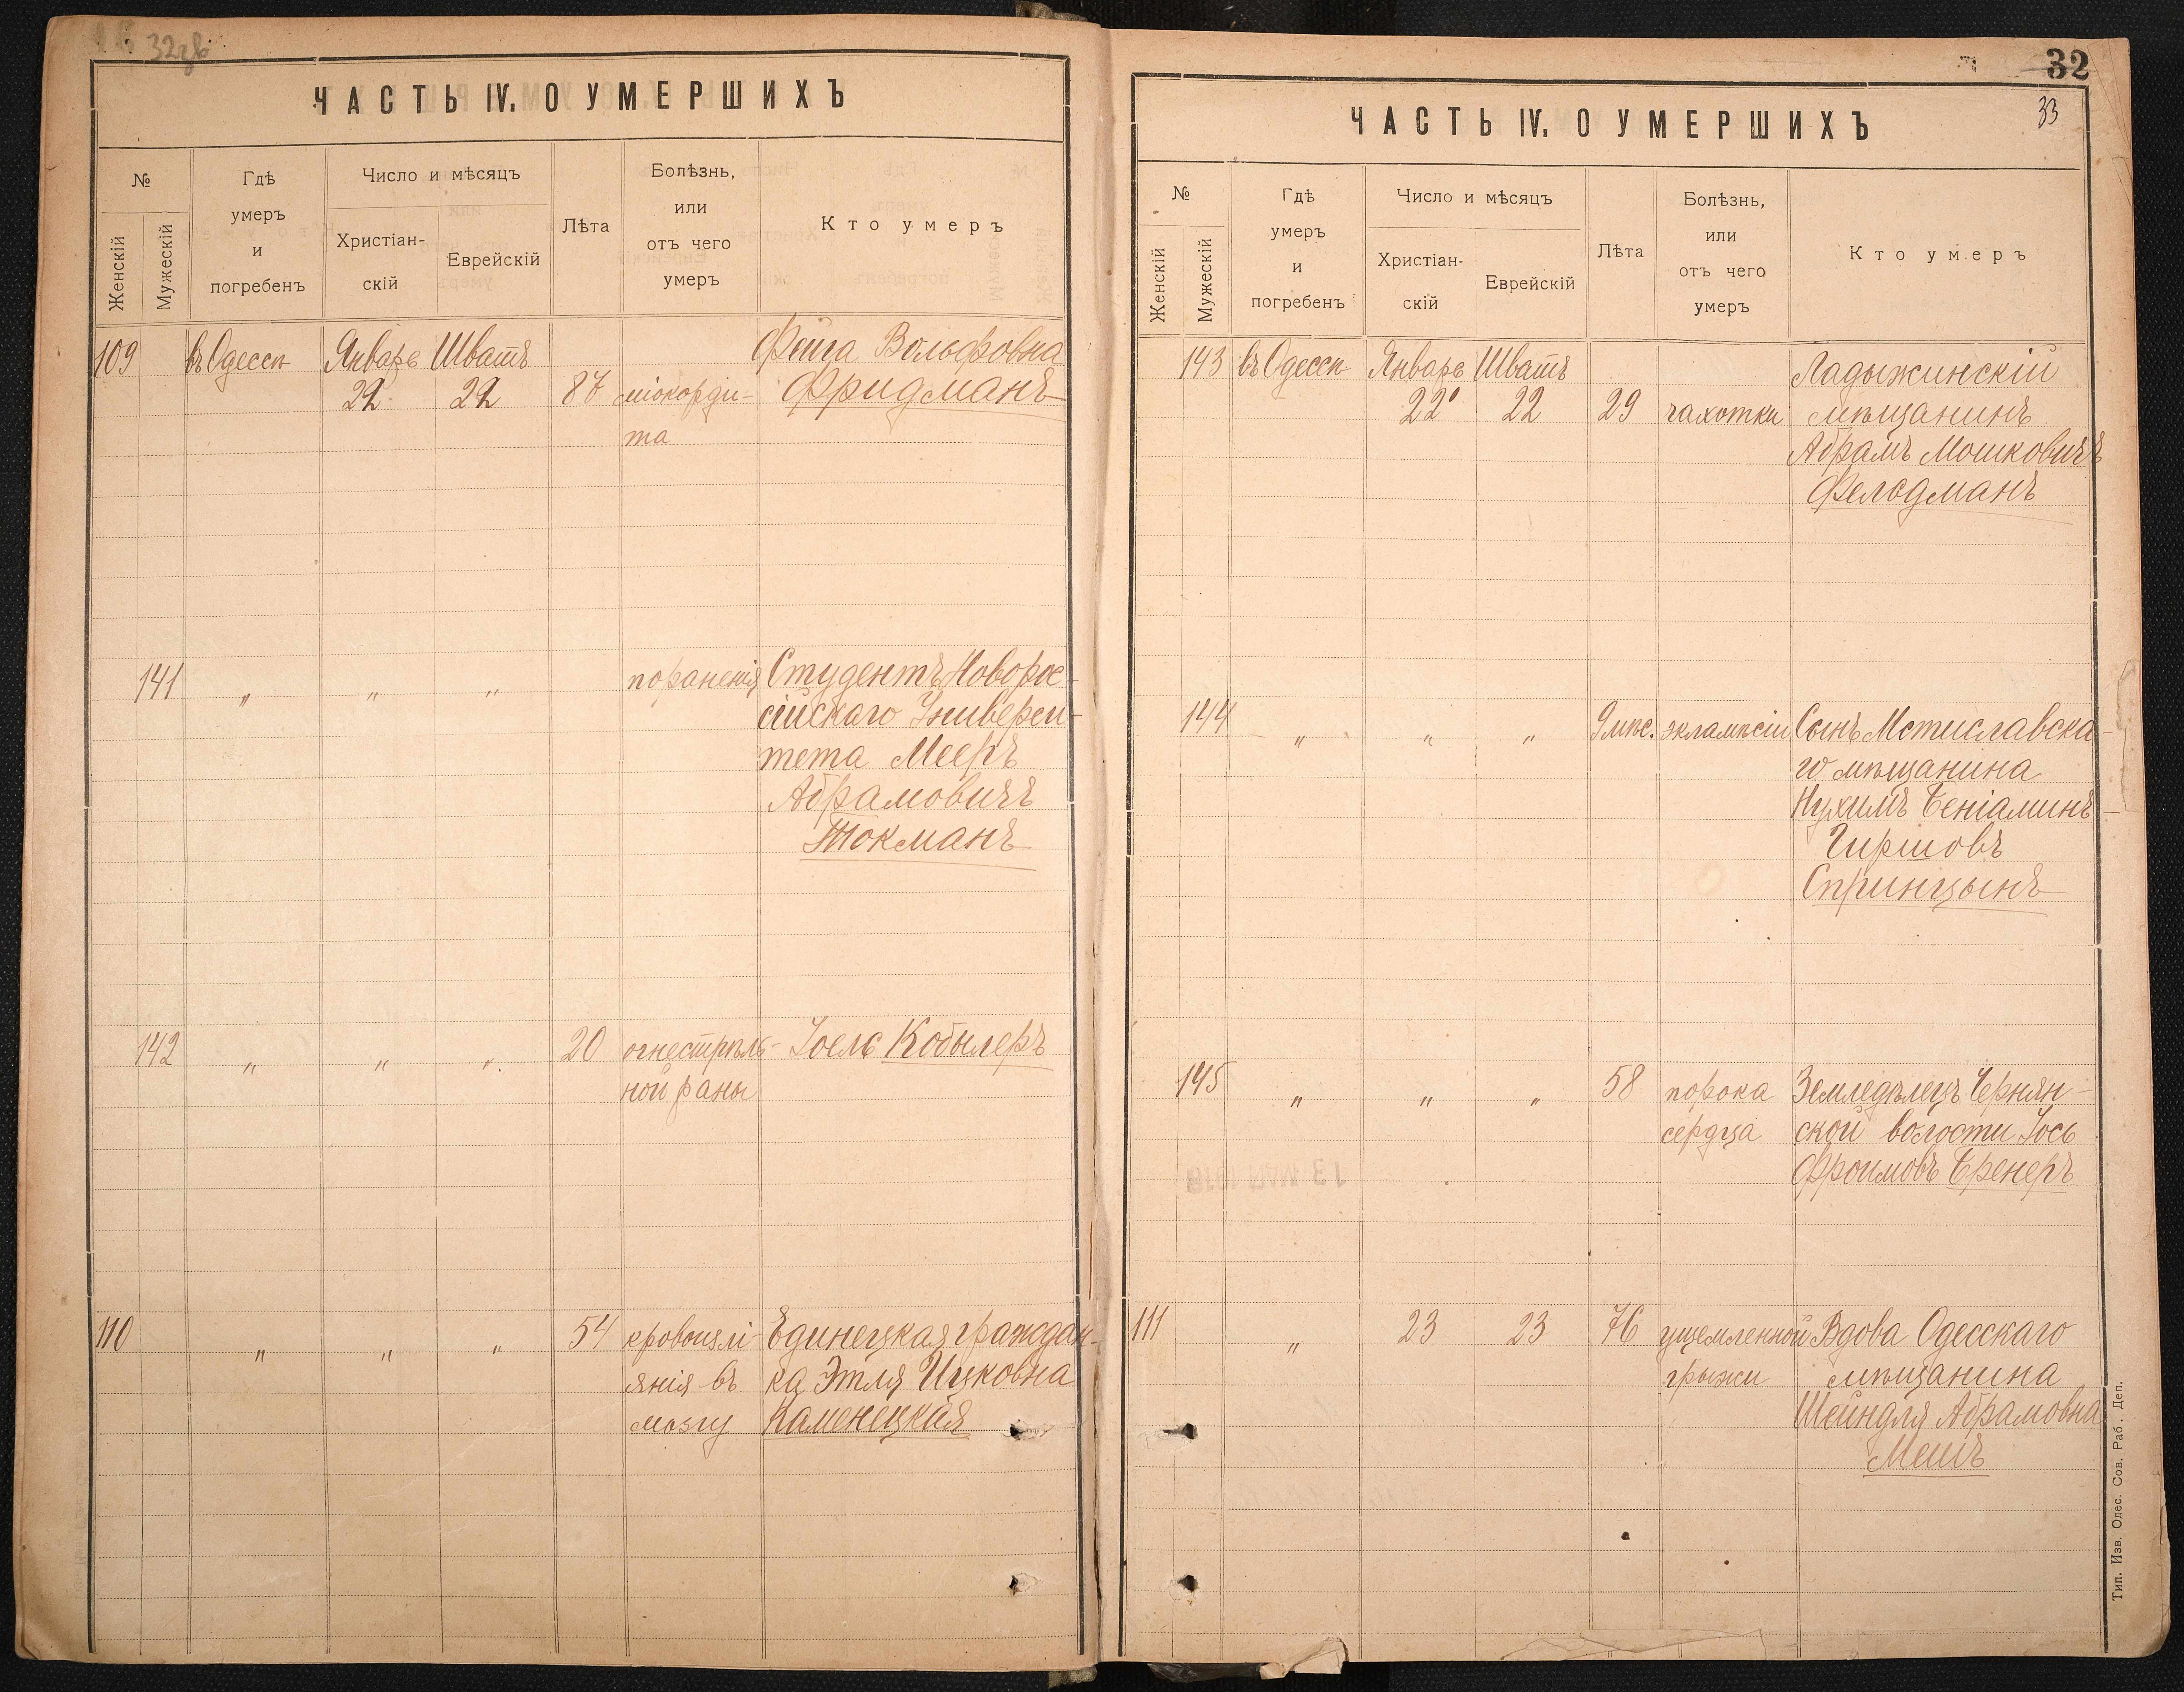 ЧАСТЬ IV. О УМЕРШИХЪ
№
Женскій
Мужескій
Гдѣ
умеръ
и
погребенъ
Число и мѣсяцъ
Христіан-
скій
Еврейскій
Лѣта
Болѣзнь,
или
отъ чего
умеръ
Кто умеръ
109
въ Одессѣ
Январь
22
Шватъ
22
87
міокорди-
та
Фейга Вольфовна
Фридманъ
141
„
„
„
пораненія
Студентъ Новорос-
сійскаго Универси-
тета Мееръ
Абрамовичъ
Токманъ
142
„
„
„
20
огнестрѣль-
ной раны
Іоель Кобылеръ
110
„
„
„
54
кровоизлі-
янія въ
мозгу
Единецкая граждан-
ка Этля Ицковна
Каменецкая
32
33
ЧАСТЬ IV. О УМЕРШИХЪ
№
Женскій
Мужескій
Гдѣ
умеръ
и
погребенъ
Число и мѣсяцъ
Христіан-
скій
Еврейскій
Лѣта
Болѣзнь,
или
отъ чего
умеръ
Кто умеръ
143
въ Одессѣ
Январь
22
Шватъ
22
29
чахотки
Ладыжинскій
мѣщанинъ
Абрамъ Мошковичъ
Фельдманъ
144
„
„
„
9 мѣс.
эклампсіи
Сынъ Мстиславска-
го мѣщанина
Нухимъ Беніаминъ
Гиршовъ
Спринцынъ
145
„
„
„
58
порока
сердца
Земледѣлецъ Чернян-
ской волости Іось
Фроимовъ Бренеръ
111
„
23
23
76
ущемленной
грыжи
Вдова Одесскаго
мѣщанина
Шейндля Абрамовна
Мешъ
13 МАЯ 1918
Тип. Изв. Одес. Сов. Раб. Деп.